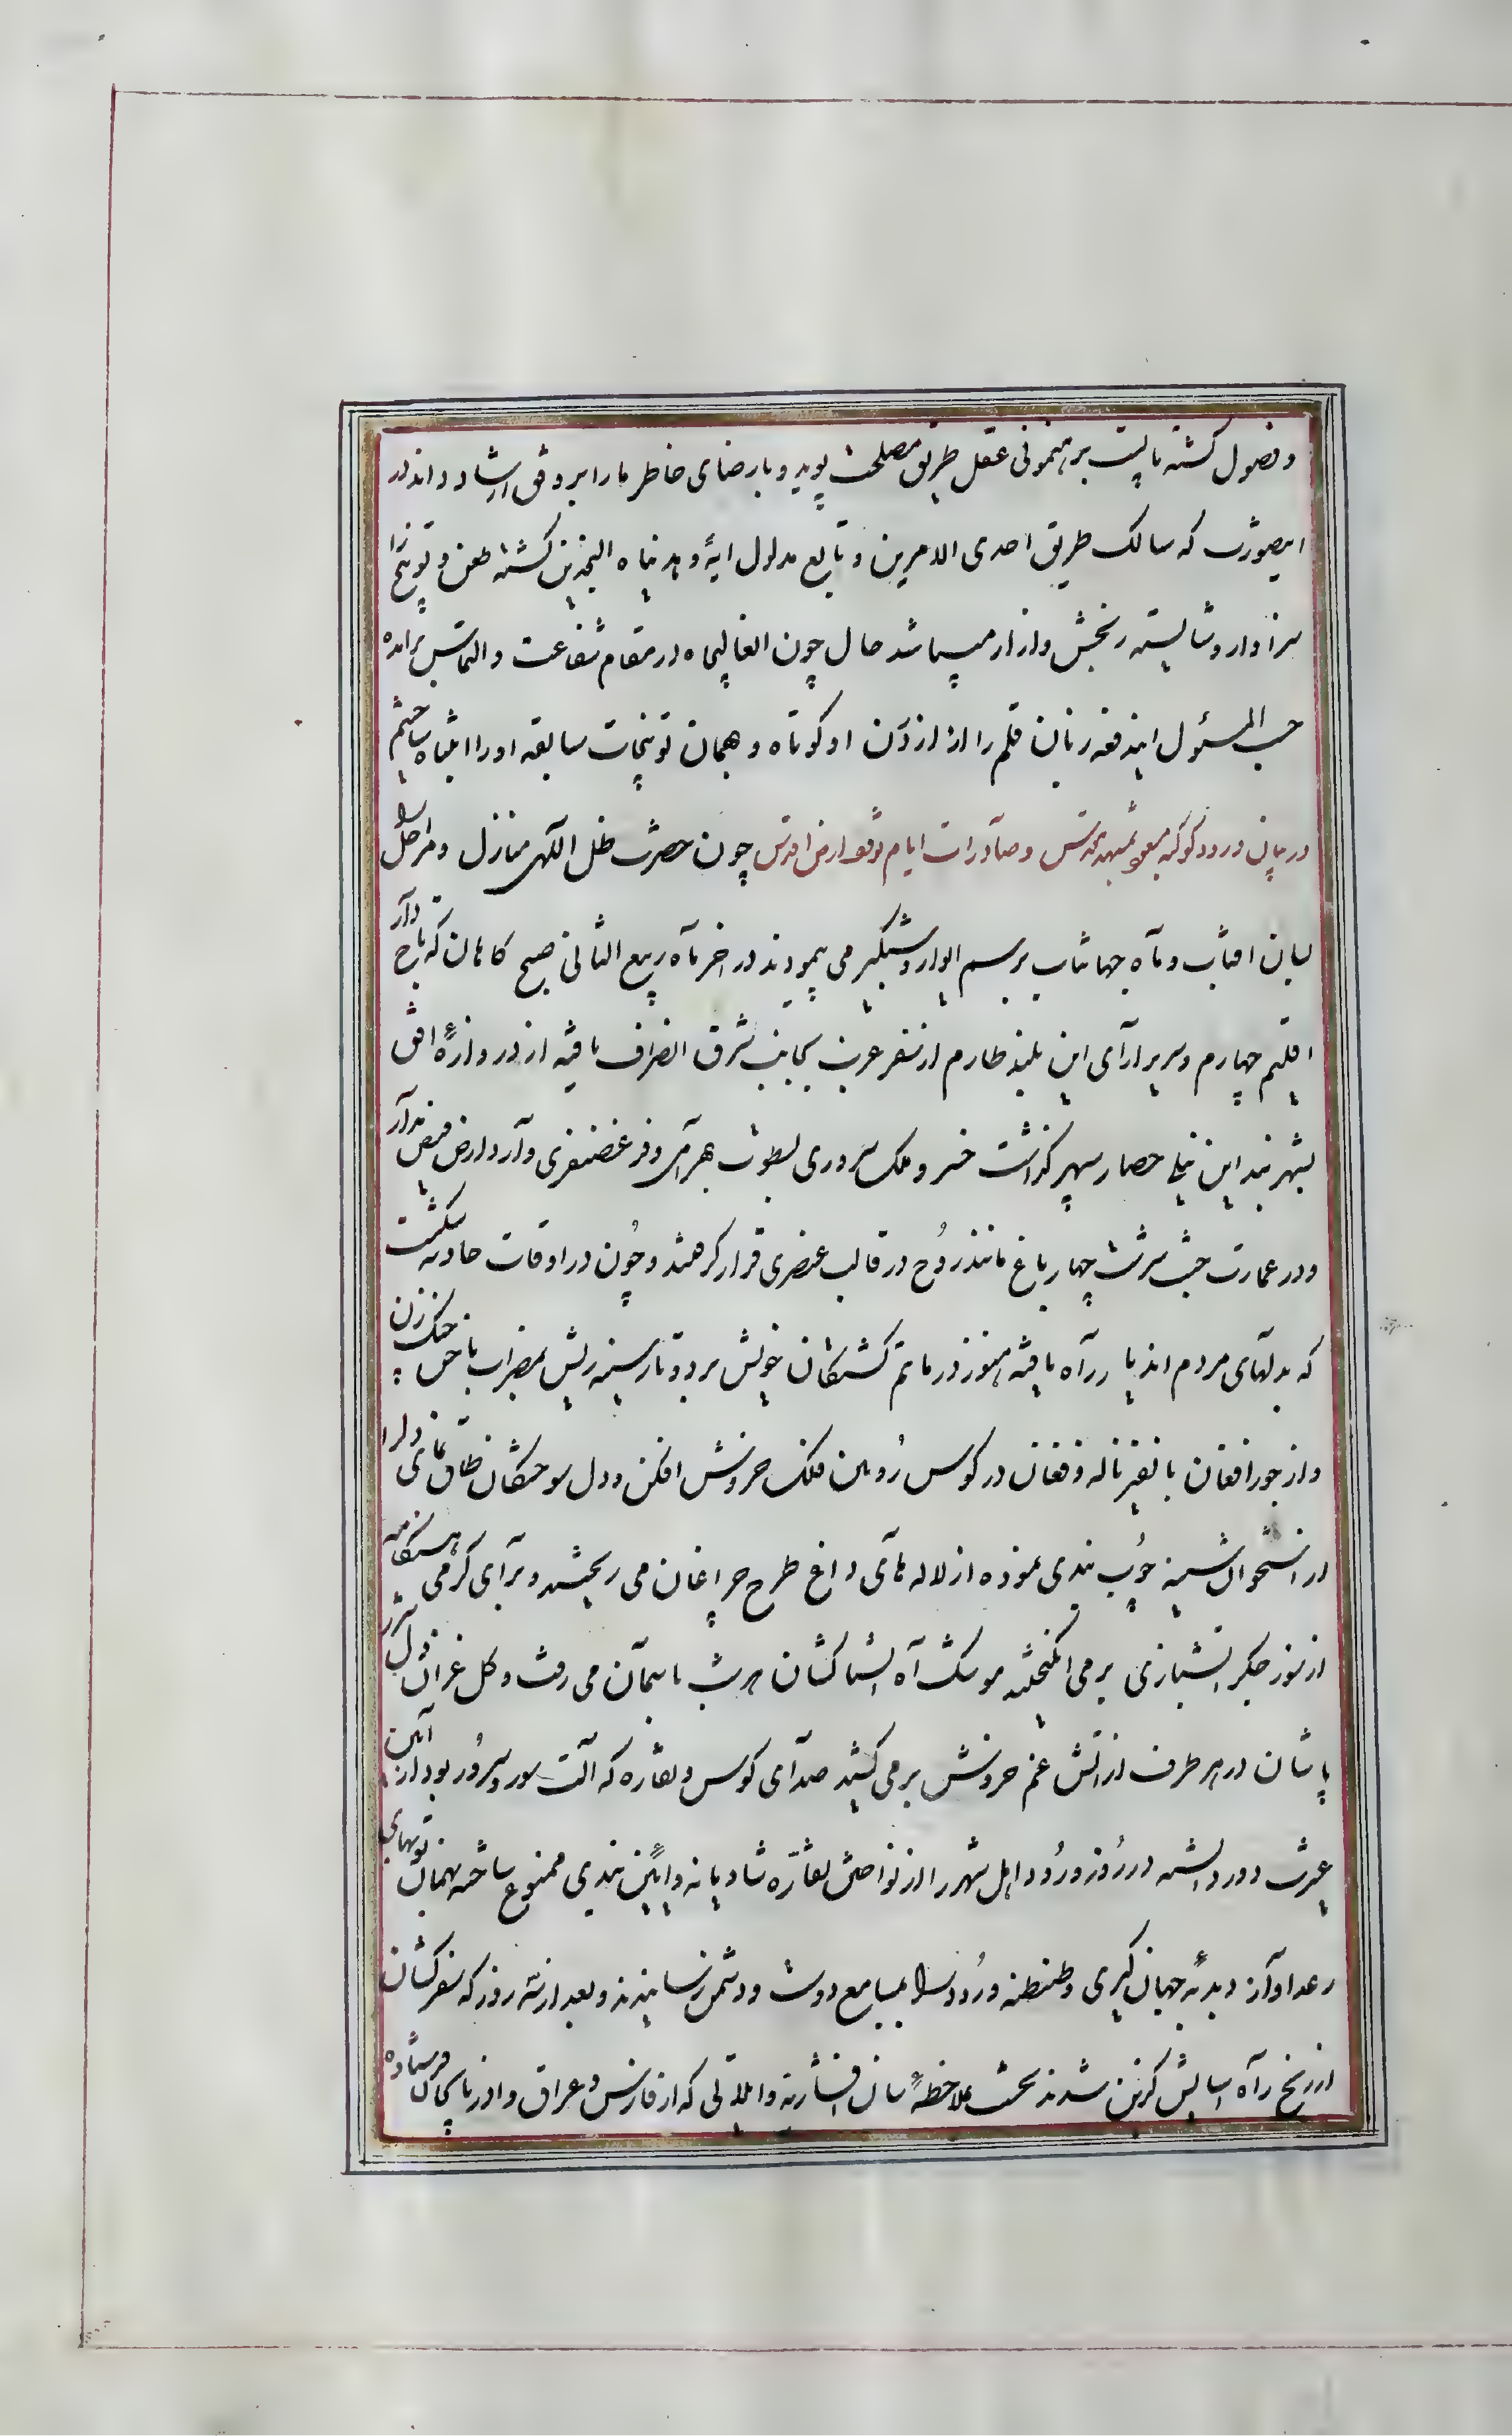 و فضول کشته بایست برهنمونی عقل طریق مصلحت پوید و یا رضای خاطر ما را بر وفق ارشاد داند در
اینصورت که سالک طریق احدی الامرین و تابع مدلول ایهٔ وهدیناه النجدین کشته طعن و توبیخ را
سزاوار و شایسته رنجش و ازار میباشد حال چون انعالیجاه در مقام شفاعت و التماس برامده
حسب المسئول ایندفعه زبان قلم را از ازردن او کوتاه و همان توبیخات سابقه او را انتباه ساختیم
در بیان ورود کوکبه مسعود بمشهد مقدس و صادرات ایام توقف ارض اقدس چون حضرت ظل الکهی منازل و مراحل را
بسان افتاب و ماه جهانتاب برسم ایوار و شبگیر می پیمودند در اخر ماه ربیع الثانی صبح کاهان که تاجدار
اقلیم چهارم و سریر ارای این بلند طارم از سفر غرب بجانب شرق انصراف یافته از دروازهٔ افق
بشهر بند این نیلی حصار سپهر کذشت خسرو ملک سروری بسطوت بهرامی و فر غضنفری وارد ارض فیض مدار
و در عمارت جنت سرشت چهار باغ مانند روح در قالب عنصری قرار کرفتند و چون در اوقات حادثه شکست
که بدلهای مردم اندیار راه یافته هنوز در ماتم کشتکان خویش بر دو تار سینه ریش بمضراب ناخن چنک زن
و از جور افغان با نفیر ناله و فغان در کوس روئین فلک خروش افکن و دل سوختکان طاق نمای دل را
از استخوان سینه چوب بندی نموده از لاله های داغ طرح چراغان می ریختند و برای کرمی هنکامه
از سوز جکر اتشبازی بر می انکیختند موشک آه انشعله کشان هر شب باسمان می رفت و کل غران دل شرر
پاشان در هر طرف از اتش غم خروش بر می کشید صدای کوس و نقاره که آلت سور و سرور بود از این
عبرت دور دانسته در روز ورود اهل شهر را از نواختن نقاره شادیانه و ایین بندی ممنوع ساخته بهمان توپهای
رعد اواز دبدبهٔ جهان کیری و طنطنه ورود را بمسامع دوست و دشمن رسانیدند و بعد از سه روز که سفر کشان
از رنج راه اسایش کزین شدند نخست بملاحظهٔ سان افشاریه و ایلاتی که از فارس و عراق و اذربایجان فرستاده